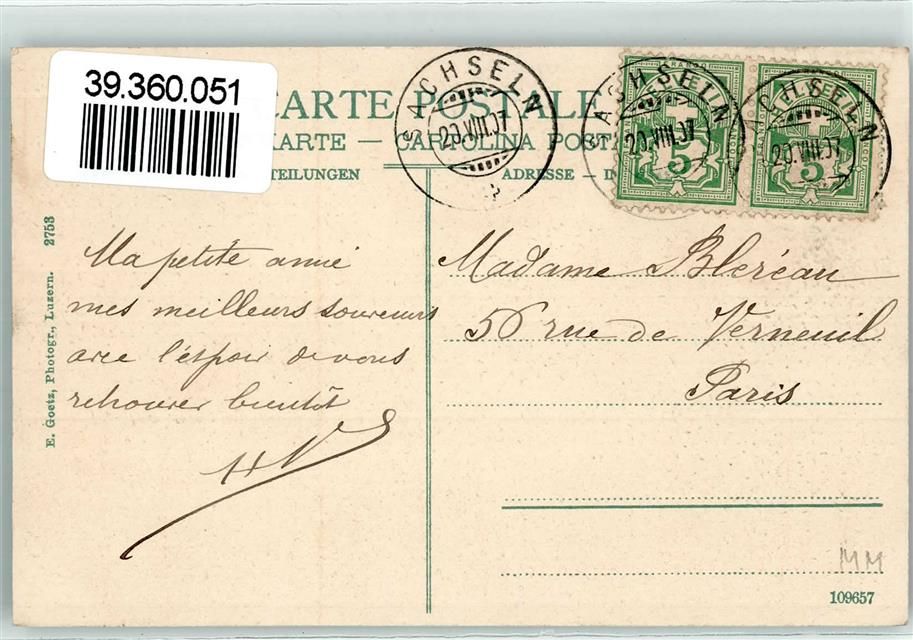 39.360.051
CARTE POSTALE
KARTE — CARTOLINA POSTA
TEILUNGEN
ADRESSE — IN
SACHSELN
20.VIII.07
SACHSELN
20.VIII.07
5
SACHSELN
20.VIII.07
5
FRANCO
E. Goetz, Photogr., Luzern. 2753
Ma petite amie
mes meilleurs souvenirs
avec l'espoir de vous
retrouver bientôt
HV
Madame Bleréau
56 rue de Verneuil
Paris
MM
109657